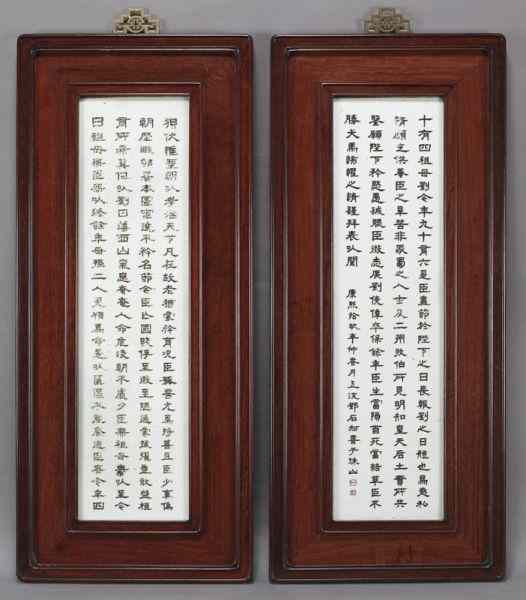 伏惟聖朝以孝治天下凡在故老猶蒙矜育況臣孤苦尤為特甚且臣少事偽
朝歷職郎署本圖宦達不矜名節今臣亡國賤俘至微至陋過蒙拔擢豈敢盤桓
有所希冀但以劉日薄西山氣息奄奄人命危淺朝不慮夕臣無祖母無以至今
日祖母無臣無以終餘年母孫二人更相為命是以區區不能廢遠臣密今年四
十有四祖母劉今年九十有六是臣盡節於陛下之日長報劉之日短也烏鳥私
情願乞終養臣之辛苦非獨蜀之人士及二州牧伯所見明知皇天后土實所共
鑒願陛下矜愍愚誠聽臣微志庶劉僥倖卒保餘年臣生當隕首死當結草臣不
勝犬馬怖懼之情謹拜表以聞
康熙拾玖年仲春月上浣鄧石如書于珠山